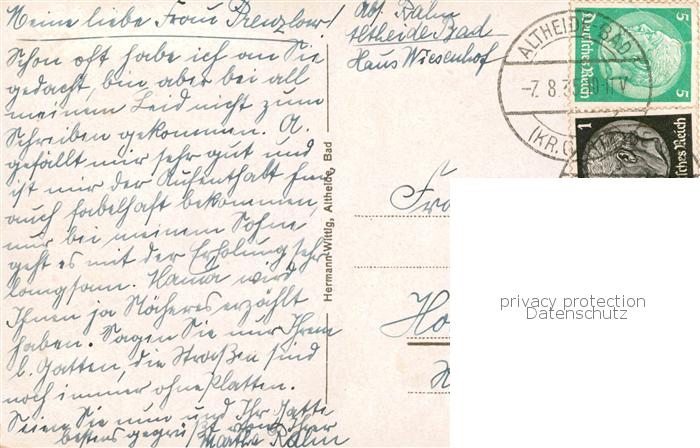 Meine liebe Frau Prenzlow!
Schon oft habe ich an Sie
gedacht, bin aber bei all
meinem Leid nicht zum
Schreiben gekommen. A.
gefällt mir sehr gut und
ist mir der Aufenthalt hier
auch fabelhaft bekommen,
nur bei meinem Sohne
geht es mit der Erholung sehr
langsam. Hanna wird
Ihnen ja Näheres erzählt
haben. Sagen Sie nur Ihrem
l. Gatten, die Straßen sind
noch immer ohne Platten.
Seien Sie nun und Ihr Gatte
bestens gegrüßt von Ihrer
Martha Rahm
Abs. Rahm
Altheide Bad
Haus Wiesenhof
Hermann Wittig, Altheide, Bad
ALTHEIDE-BAD
-7. 8. 3
V
(KR.G
Deutsches Reich
5
5
1
sches Reich
Fra
Ho
privacy protection
Datenschutz